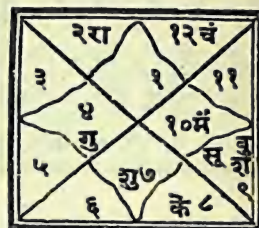 २रा १२चं
३ १ ११
४ १०मं
गु
सू बु
श
५ शु७ ९
६ के ८